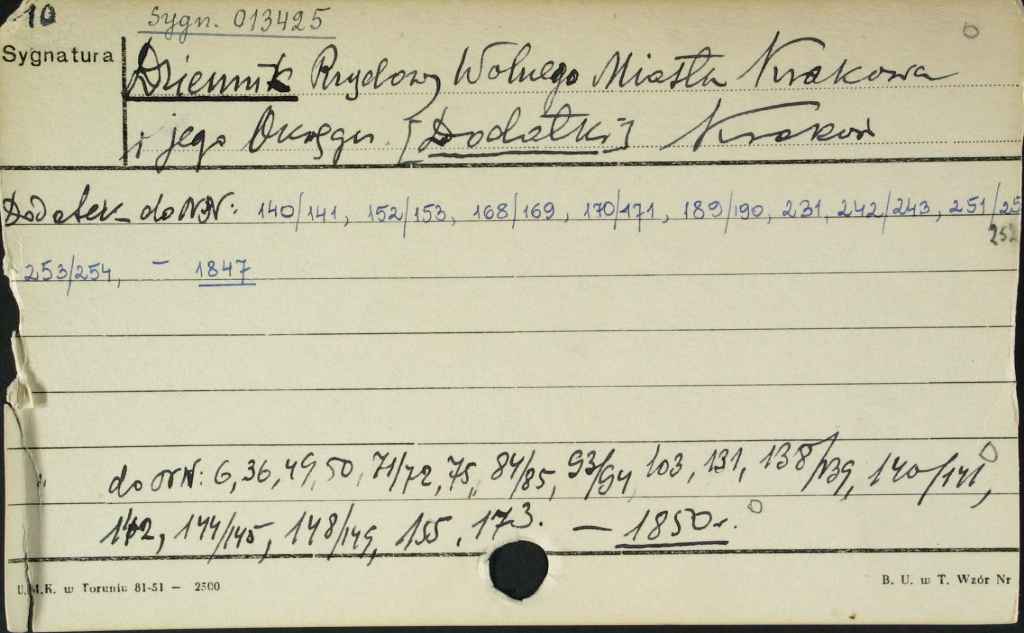 10
Sygn. 013425
Sygnatura
Dziennik Rządowy Wolnego Miasta Krakowa
i jego Okręgu. [Dodatki] Kraków
Dodatek do NN: 140/141, 152/153, 168/169, 170/171, 189/190, 231, 242/243, 251/25
252
253/254, – 1847
do NN: 6, 36, 49, 50, 71/72, 75, 84/85, 93/94, 103, 131, 138/139, 140/141,
142, 144/145, 148/149, 155, 173. – 1850r.
U.M.K. w Toruniu 81-51 – 2500
B. U. w T. Wzór Nr